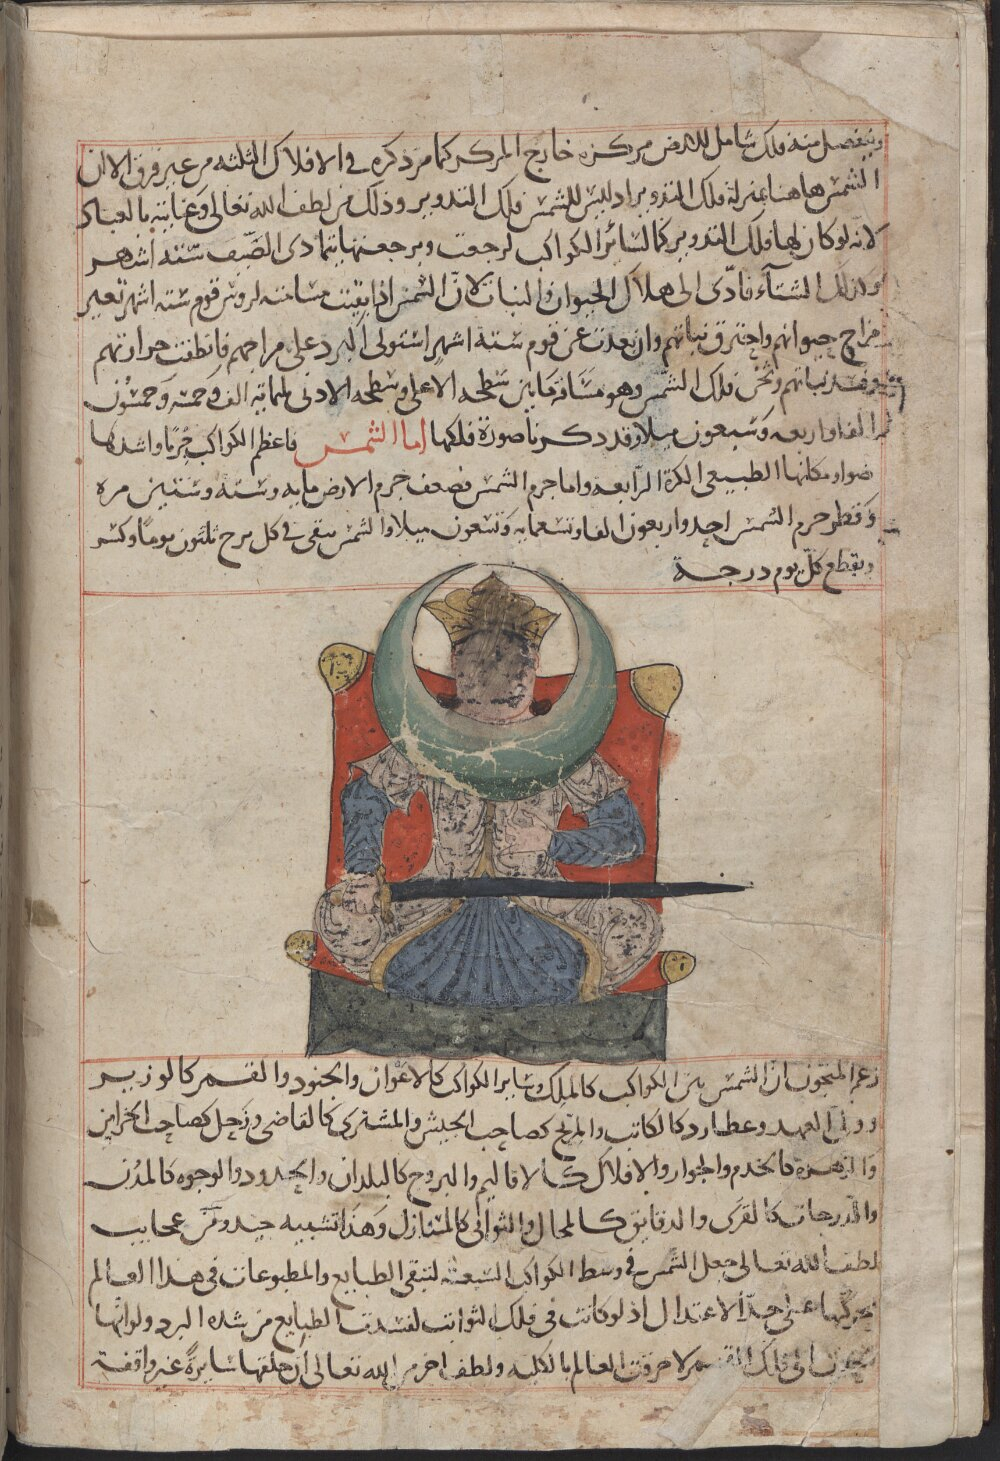 وينفصل منه فلك شامل للارض مركزه خارج المركز كما مر ذكره في الافلاك الثلثه من غير فرق الا ان
الشمس هاهنا بمنزلة فلك التدوير اذ ليس للشمس فلك التدوير وذلك من لطف الله تعالى وعنايته بالعباد
لانه لو كان لها فلك التدوير كما لسائر الكواكب لرجعت وبرجعتها يتمادى الصيف ستة اشهر
وكذلك الشتاء فادى الى هلاك الحيوان والنبات لان الشمس اذا بقيت مسامتة لروس قوم ستة اشهر تغير
مزاج حيوانهم واحترق نباتهم وان بعدت عن قوم ستة اشهر استولى البرد على مزاجهم فانطفت حرارتهم
وفسد نباتهم وثخن فلك الشمس وهو مسافة ما بين سطحه الاعلى وسطحه الادنى ثلماية الف وخمسة وخمسون
الفا واربعه وسبعون ميلا وقد ذكرنا صورة فلكها اما الشمس فاعظم الكواكب جرما واشدها
ضوا ومكانها الطبيعي الكرة الرابعه واما جرم الشمس فضعف جرم الارض مايه وستة وستين مرة
وقطر جرم الشمس احد واربعون الفا وتسعمايه وتسعون ميلا والشمس تبقى في كل برج ثلثون يوما وكسر
وتقطع كل يوم درجة
زعم المنجمون ان الشمس بين الكواكب كالملك وسائر الكواكب كالاعوان والجنود والقمر كالوزير
وولي العهد وعطارد كالكاتب والمريخ كصاحب الجيش والمشتري كالقاضي وزحل كصاحب الخزاين
والزهرة كالخدم والجوار والافلاك كالاقاليم والبروج كالبلدان والحدود والوجوه كالمدن
والدرجات كالقرى والدقايق كالمحال والثواني كالمنازل وهذا تشبيه جيد ومن عجايب
لطف الله تعالى جعل الشمس في وسط الكواكب السبعة لتبقى الطبايع والمطبوعات في هذا العالم
بحركتها على حد الاعتدال اذ لو كانت في فلك الثوابت لفسدت الطبايع من شدة البرد ولو انها
انحدرت الى فلك القمر لاحرقت العالم بالكلية ولطف اخر من الله تعالى ان خلقها سايرة غير واقفة